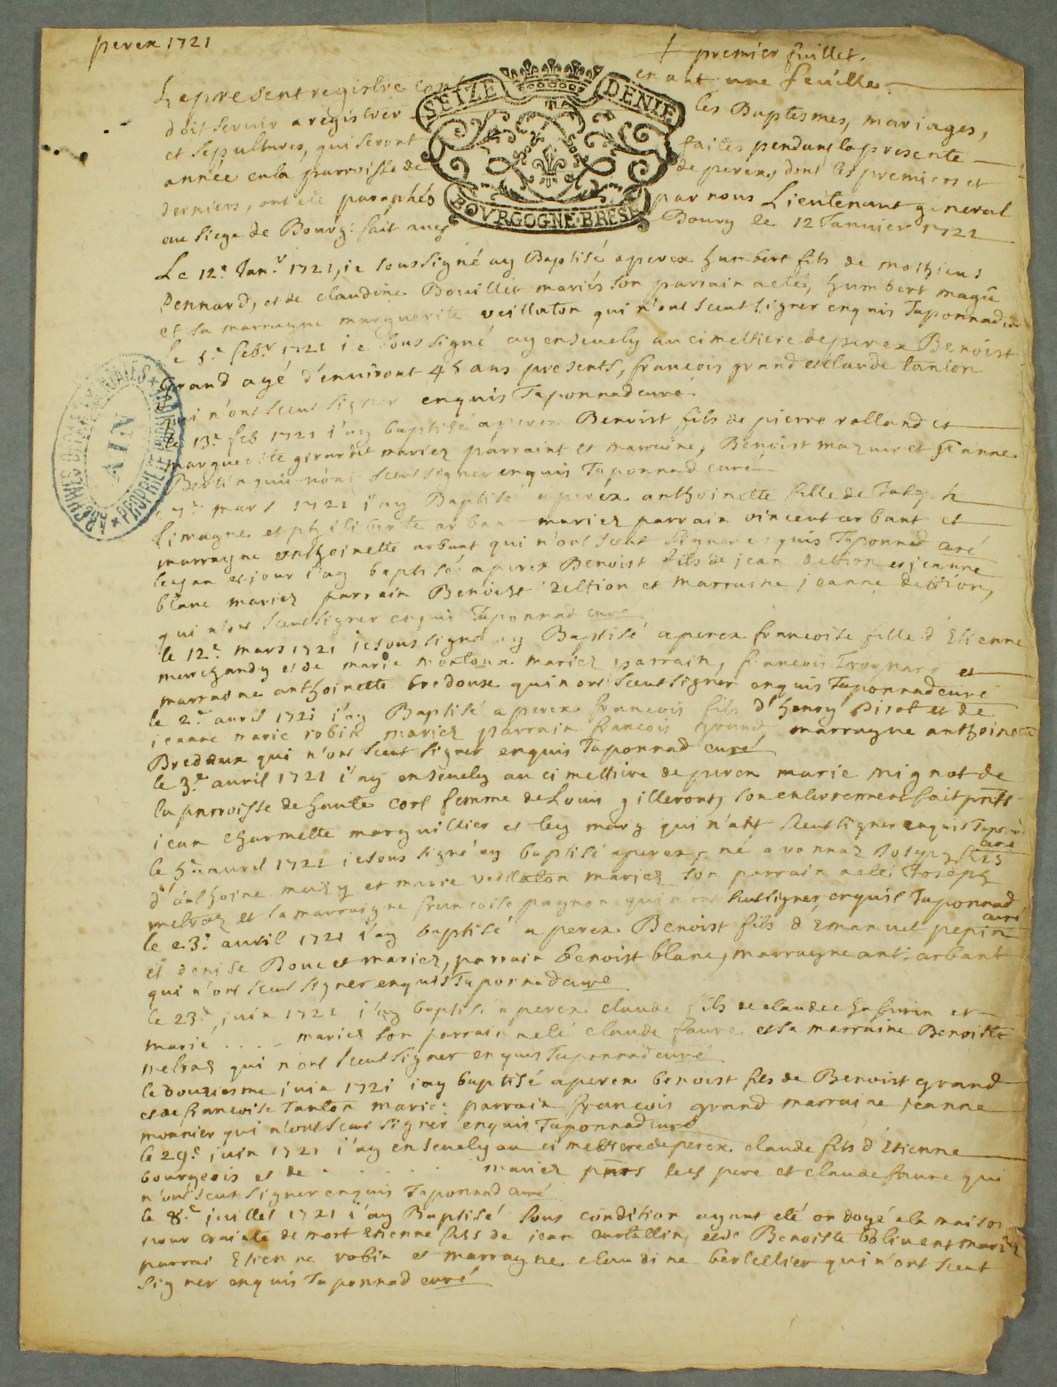 perex 1721
+ premier fuillet.
Le present registre contenant une feuille
doit servir a registrer les Baptesmes, mariages,
et sepultures, qui seront faites pendant la presente
année en la parroisse de perex, dont les premiers et
derniers, ont été paraphés par nous Lieutenant general
au siege de Bourg fait aud Bourg le 12 Janvier 1721
SEIZE DENIE
BOVRGOGNE BRESSE
ARCHIVES DEPARTEMENTALES
AIN
PROPRIETE PUBLIQUE
Le 12e Janr 1721, ie soussigné ay Baptisé a perex humbert fils de mathieu
Pennard, et de claudine Bouillet mariés son parrain a eté, humbert
et sa marragne marguerite veillaton qui n'ont sceut signer enquis Taponnad
le febr 1721 ie soussigné ay ensevely au cimettiere de perex Benoist
grand agé d'environt 45 ans presents, francois grand et claude tanton
qui n'ont sceut signer enquis Taponnad curé
le 13e feb 1721 i'ay baptisé a perex Benoist fils de pierre rolland et
marguerite girardit mariez parraint et marraine, Benoist mazuir et Jeanne
qui n'ont sceut signer enquis Taponnad curé
mars 1721 i'ay Baptisé a perex anthoinette fille de Joseph
Limagne et philiberte arban mariez parrain vincent arbant et
marragne anthoinette arbant qui n'ont sceut signer enquis Taponnad curé
et jour i'ay baptisé a perex Benoist fils de jean et jeanne
blanc mariez parrein Benoist deltion et marraine jeanne deltion,
qui n'ont sceut signer enquis Taponnad curé
le 12e mars 1721 ie soussigné ay Baptisé a perex francoise fille d'Etienne
marchandy et de marie montoux mariez parrain, francois et
marraine anthoinette bredoux qui n'ont sceut signer enquis Taponnad curé
le 2e avril 1721 i'ay Baptisé a perex francois fils d'henry Pirot et de
jeanne marie robin mariez parrain francois grand, marragne anthoinette
Breddoux qui n'ont sceut signer enquis Taponnad curé
le 3e avril 1721 i'ay ensevely au cimettiere de perex marie mignot de
la parroisse de haute cort femme de Louis gilleront, son enterrement fait pnts
jean charmette marguillier et ley mary qui n'ont sceut signer enquis Taponnad curé
le avril 1721 ie soussigné ay baptisé a perex, né a vonnaz fils
d'anthoine et marie veillaton mariez son parrain a eté Joseph
et sa marraigne francoise pagnon qui n'ont sceut signer, enquis Taponnad curé
le 23e avril 1721 i'ay baptisé a perex Benoist fils d'Emanuel pepin
et denise Bouc et mariez, parrain benoist blanc, marragne ant. arbant
qui n'ont sceut signer enquis Taponnad curé
le 23e juin 1721 i'ay baptisé a perex claude fils de claude et
marie . . . . mariez son parrain a eté claude faure et sa marraine Benoiste
qui n'ont sceut signer enquis Taponnad curé
le douziesme juin 1721 i'ay baptisé a perex benoist fils de Benoist grand
et de francoise Tanton mariez parrain francois grand marraine jeanne
monnier qui n'ont sceut signer enquis Taponnad curé
le 29e juin 1721 i'ay ensevely au cimettiere de perex claude fils d'Etienne
bourgeois et de . . . . . . mariez pnts led pere et claude faure qui
n'ont sceut signer enquis Taponnad curé
le 8e juillet 1721 i'ay Baptisé sous condition ayant eté ondoyé a la maison
pour crainte de mort Etienne fils de jean et de Benoiste mariez
parrai Etienne robin et marragne claudine bertellier qui n'ont sceut
signer enquis Taponnad curé